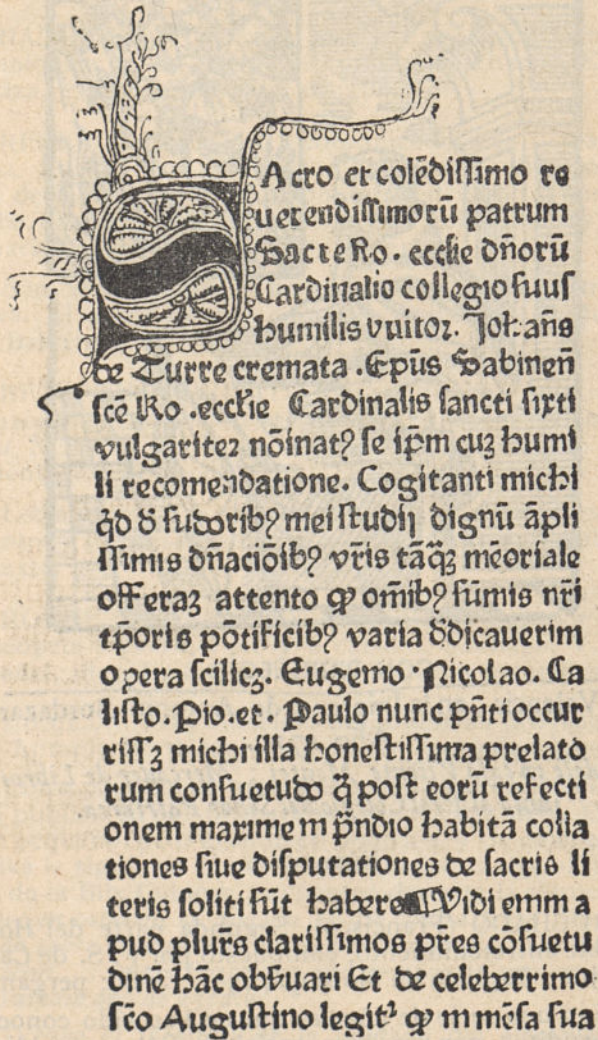 SAcro et colēdissimo re
uerendissimorū patrum
Sacre Ro. ecclie dñorū
Cardinaliū collegio suus
humilis vuitoz. Johañs
de Turre cremata .Epūs Sabineñ
scē Ro .ecclie Cardinalis sancti sixti
vulgariteꝛ nōinatꝰ se ip̄m cuꝫ humi
li recomendatione. Cogitanti michi
qd̄ d̄ sudoribꝰ mei studij dignū āpli
ssimis dñaciōibꝰ vr̄is tāqꝫ mēoriale
offeraꝫ attento ꝙ om̄ibꝰ sūmis nr̄i
tp̄oris pōtificibꝰ varia d̄dicauerim
opera scilicꝫ. Eugenio .Nicolao. Ca
listo.Pio.et. Paulo nunc pñti occur
rissꝫ michi illa honestissima prelato
rum consuetudo q̄ post eorū refecti
onem maxime in p̄ndio habitā colla
tiones siue disputationes de sacris li
teris soliti sūt habere ¶Vidi enim a
pud plur̄s clarissimos pr̄es cōsuetu
dinē hāc obẜuari Et de celeberrimo
scō Augustino legitᷣ ꝙ in mēsa sua